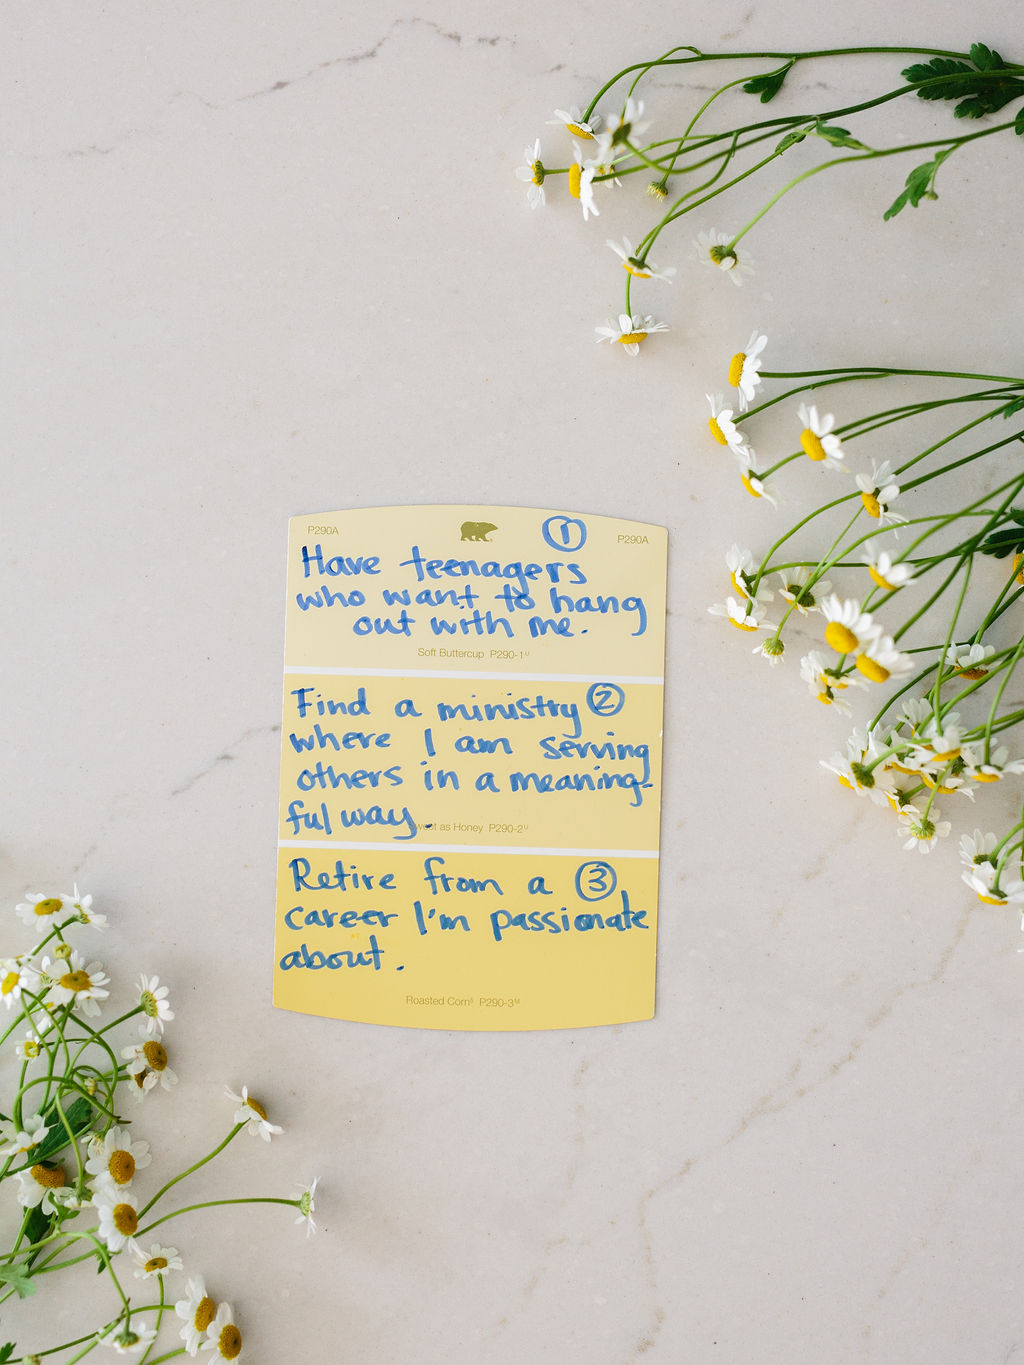 P290A ① P290A
Have teenagers
who want to hang
out with me.
Soft Buttercup P290-1ᵁ
Find a ministry ②
where I am serving
others in a meaning-
ful way.
as Honey P290-2ᵁ
Retire from a ③
career I'm passionate
about.
Roasted Corn P290-3ᴹ